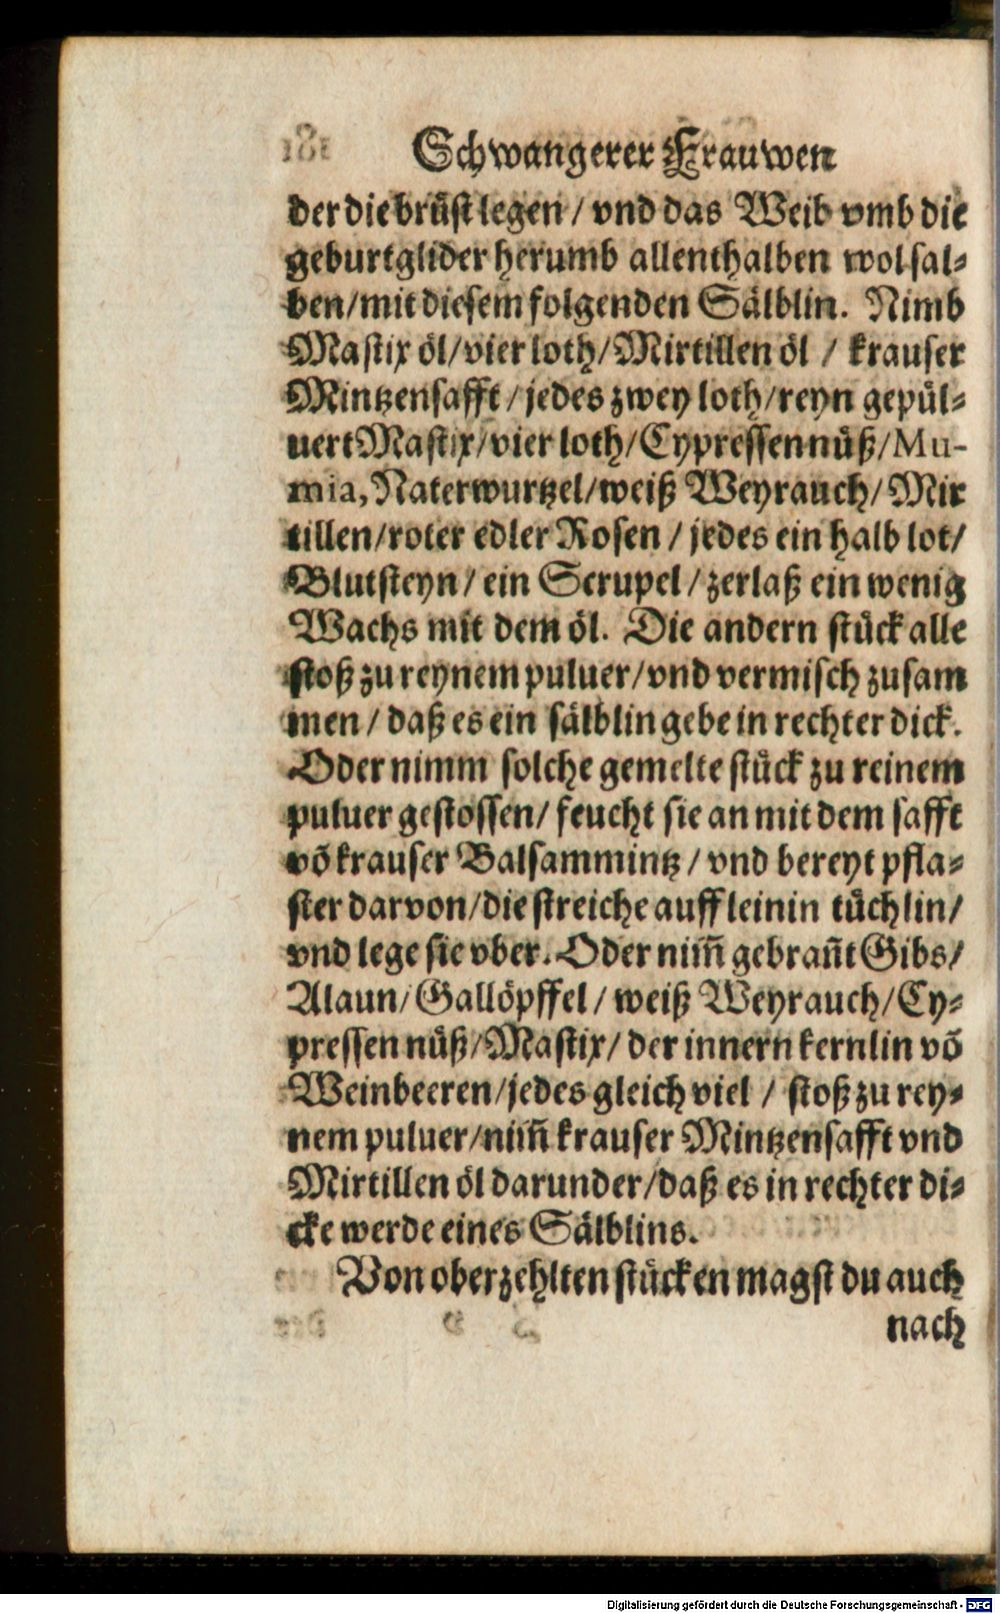 Schwangerer Frauwen
der die brüst legen / vnd das Weib vmb die
geburtglider herumb allenthalben wol sal-
ben/mit diesem folgenden Sälblin. Nimb
Mastix öl/vier loth/Mirtillen öl / krauser
Mintzensafft / jedes zwey loth/reyn gepül-
uert Mastix/vier loth/Cypressennüß/Mu-
mia, Naterwurtzel/weiß Weyrauch/Mir
tillen/roter edler Rosen / jedes ein halb lot/
Blutsteyn / ein Scrupel / zerlaß ein wenig
Wachs mit dem öl. Die andern stück alle
stoß zu reynem puluer/vnd vermisch zusam
men / daß es ein sälblin gebe in rechter dick.
Oder nimm solche gemelte stück zu reinem
puluer gestossen/ feucht sie an mit dem safft
võ krauser Balsammintz / vnd bereyt pfla-
ster darvon/die streiche auff leinin tüchlin/
vnd lege sie vber. Oder nim̃ gebrañt Gibs/
Alaun/Gallöpffel / weiß Weyrauch/Cy-
pressen nüß/Mastix/ der innern kernlin võ
Weinbeeren/jedes gleich viel / stoß zu rey-
nem puluer/nim̃ krauser Mintzensafft vnd
Mirtillen öl darunder/daß es in rechter di-
cke werde eines Sälblins.
Von oberzehlten stücken magst du auch
nach
Digitalisierung gefördert durch die Deutsche Forschungsgemeinschaft - DFG